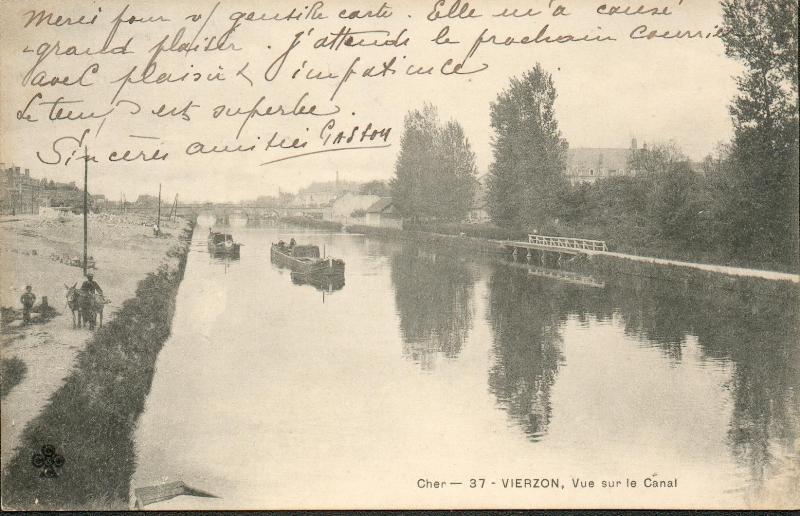 Merci pour v/ gentille carte. Elle m'a causé
grand plaisir. J'attends le prochain courrier
avec plaisir & impatience
Le temps est superbe.
Sincères amitiés GASTON
Cher — 37 - VIERZON, Vue sur le Canal